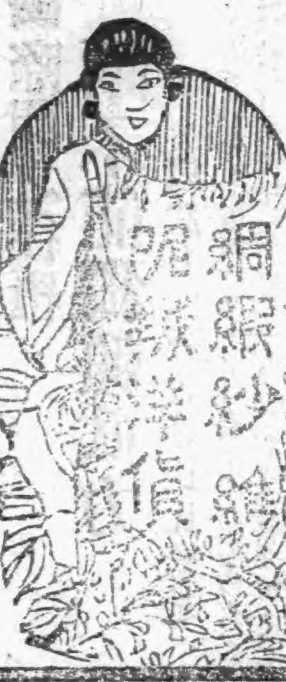 綢緞紗繪
呢絨洋貨